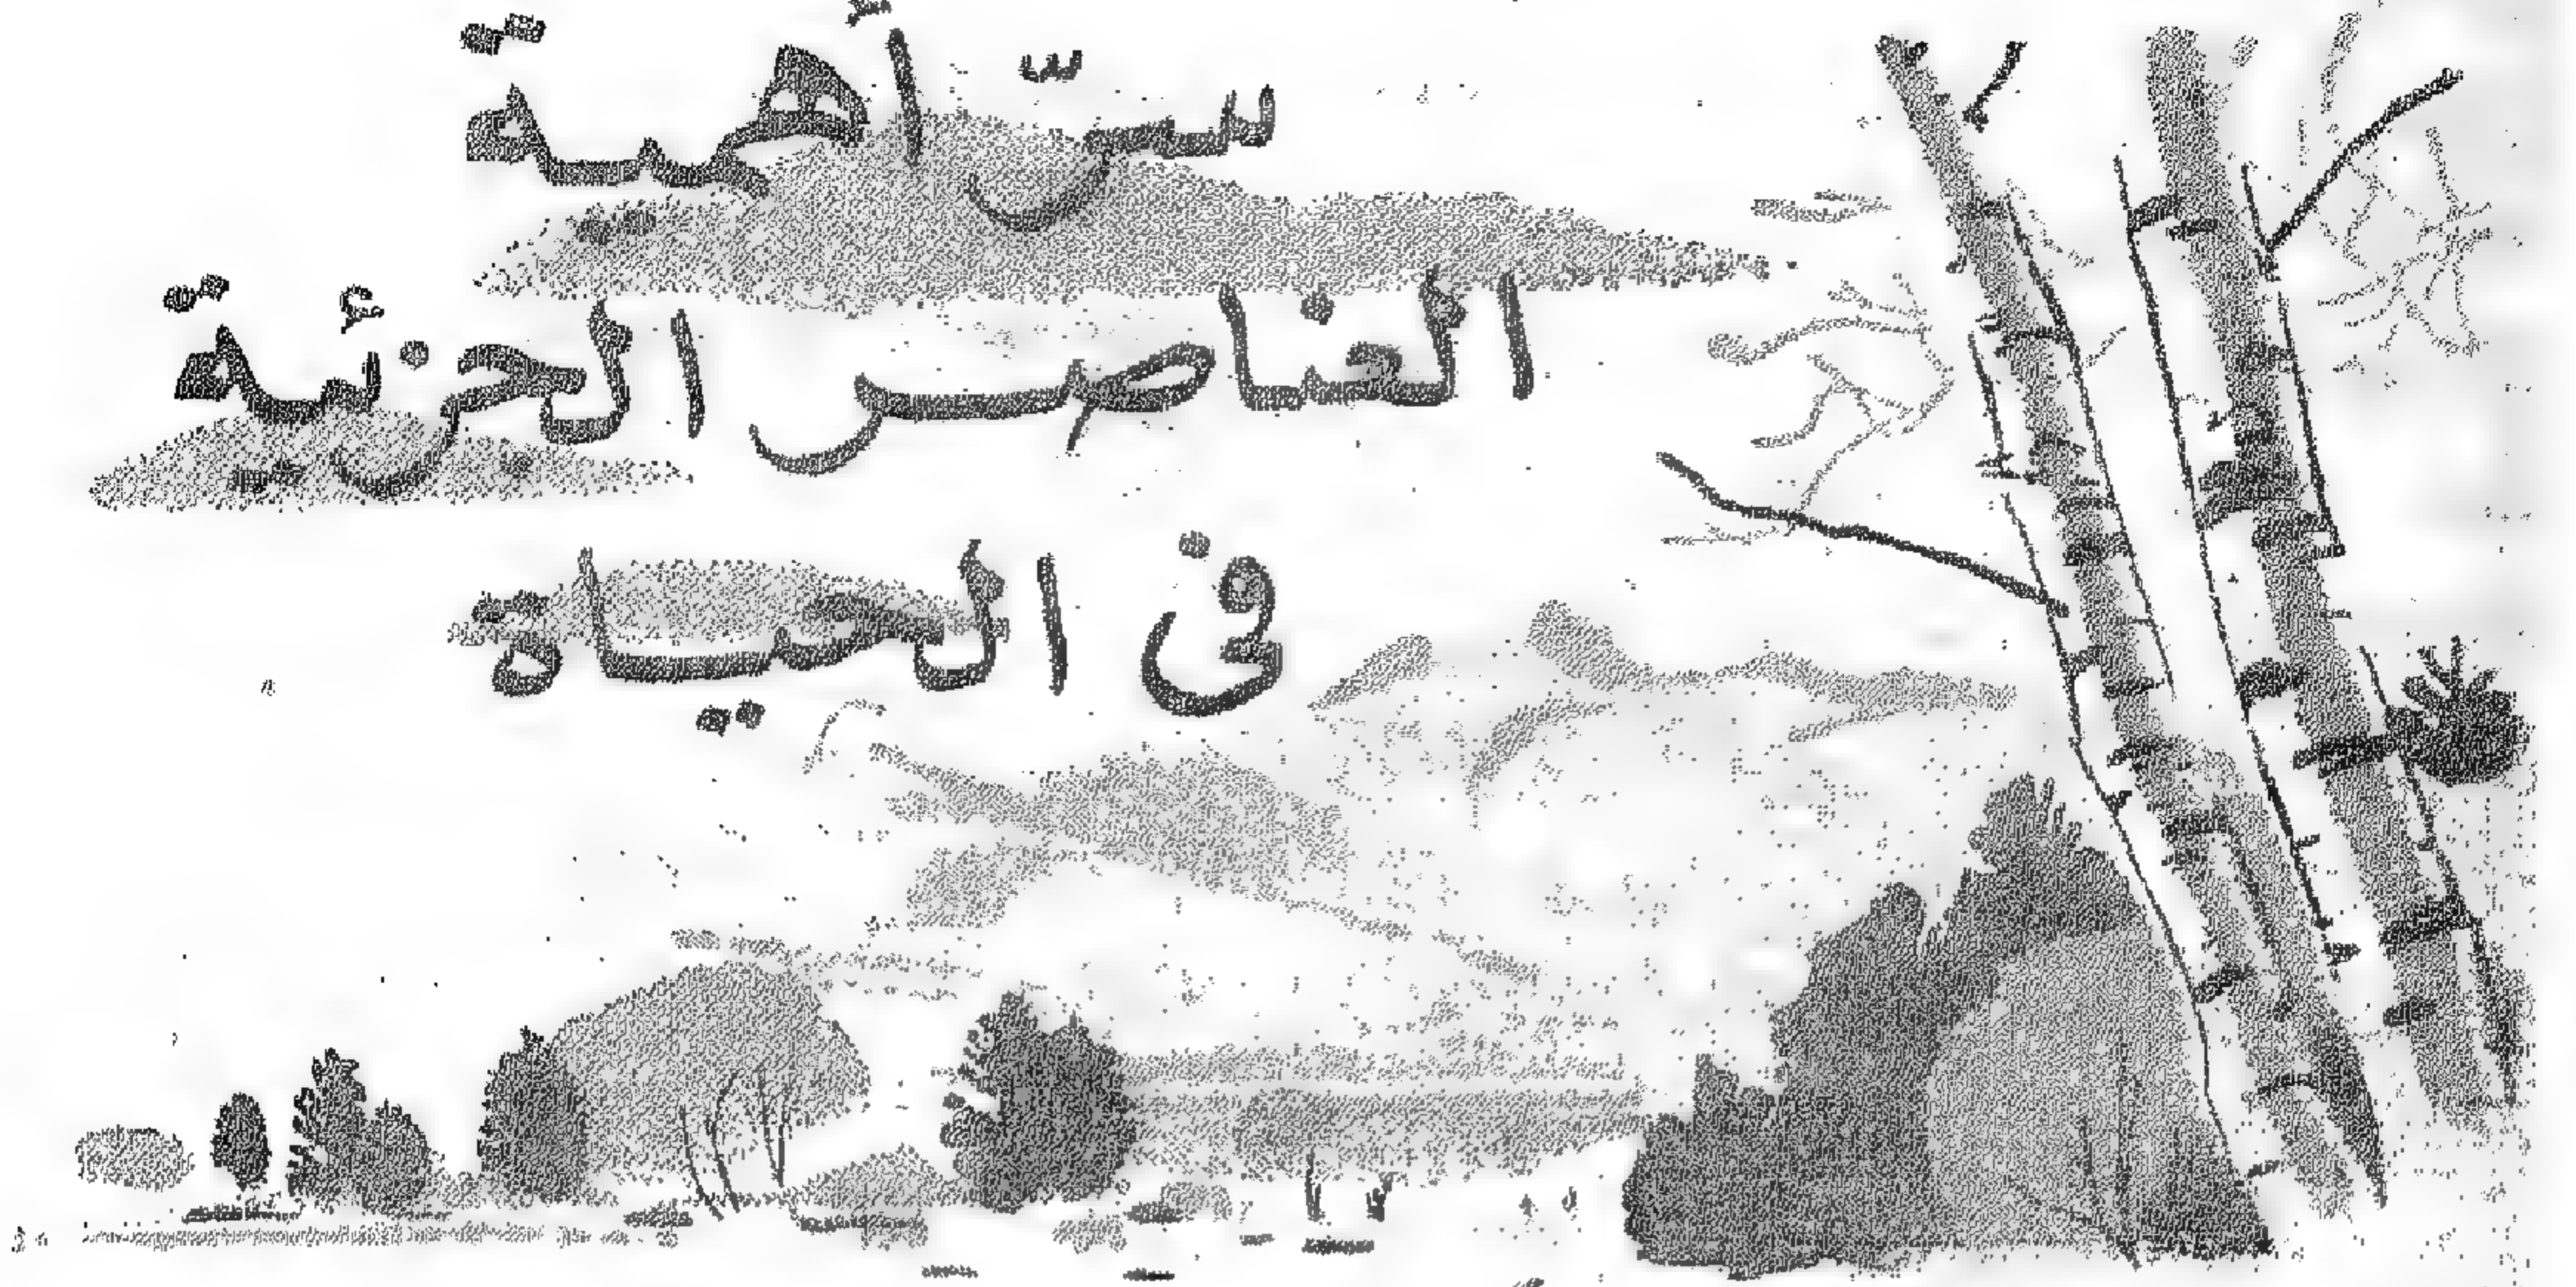 سرّ أهمية
العناصر الجزئية
فى الحياة